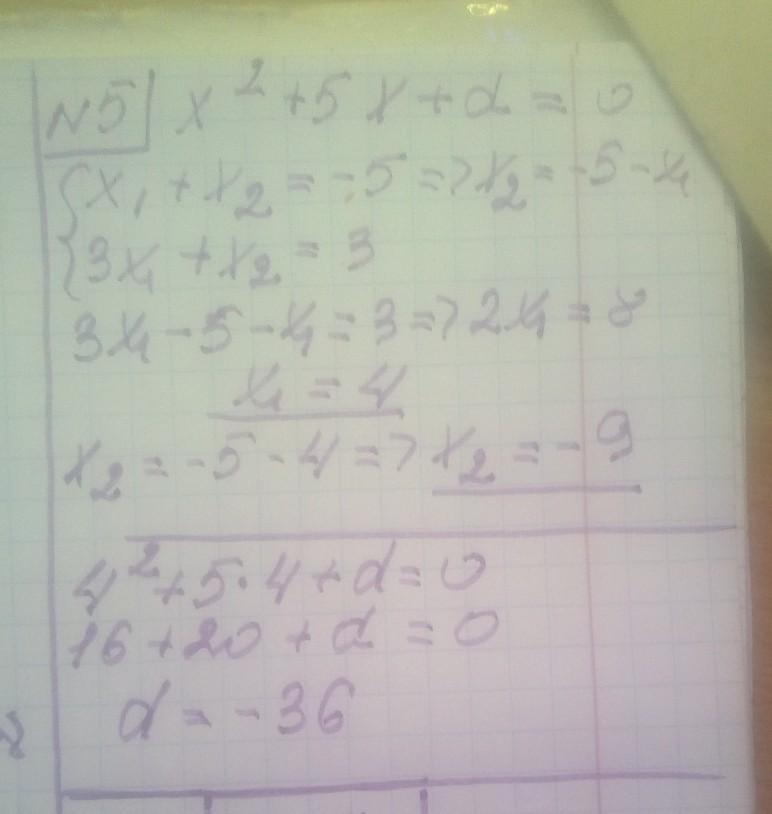 N5 x² + 5x + d = 0
{ x₁ + x₂ = -5 => x₂ = -5 - x₁
{ 3x₁ + x₂ = 3
3x₁ - 5 - x₁ = 3 => 2x₁ = 8
x₁ = 4
x₂ = -5 - 4 => x₂ = -9
4² + 5·4 + d = 0
16 + 20 + d = 0
d = -36